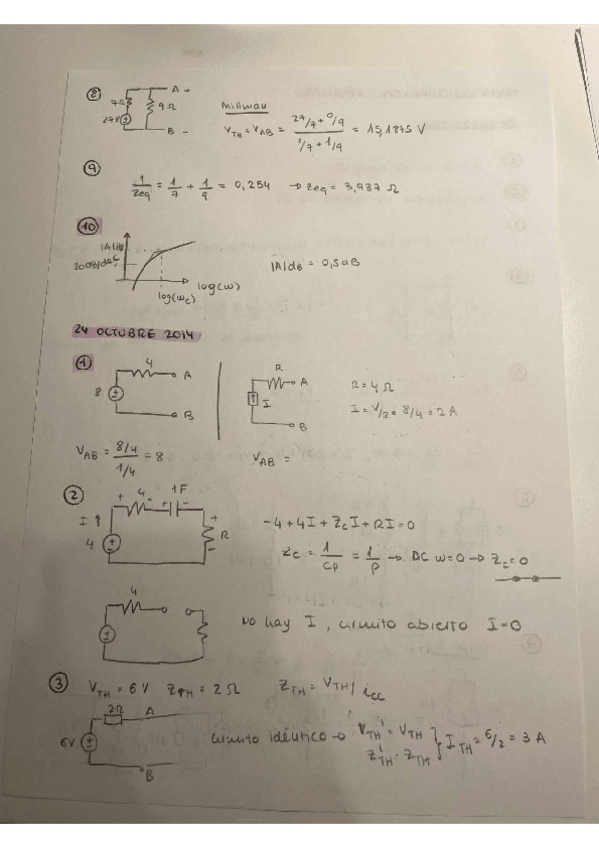 ⑧ 7Ω 9Ω A + 27V B -
Millman
V_TH = V_AB = (27/7 + 0/9) / (1/7 + 1/9) = 15,1875 V
⑨
1/Zeq = 1/7 + 1/9 = 0,254 → Zeq = 3,937 Ω
⑩
|A|dB
20dB/dec
log(ωc) log(ω)
|A|dB = 0,5dB
24 OCTUBRE 2014
① 4 A 8 B
R A I B
R = 4 Ω
I = V/R = 8/4 = 2 A
V_AB = (8/4) / (1/4) = 8
V_AB =
② + 4 - 1F + - I ↑ 4 + R -
-4 + 4I + Z_C I + RI = 0
Z_C = 1/Cp = 1/p → DC ω=0 → Z_C = 0
4
No hay I, circuito abierto I=0
③ V_TH = 6 V Z_TH = 2 Ω Z_TH = V_TH / i_CC
2Ω A 6V B
circuito idéntico → V'_TH = V_TH
Z'_TH = Z_TH } I_TH = 6/2 = 3 A